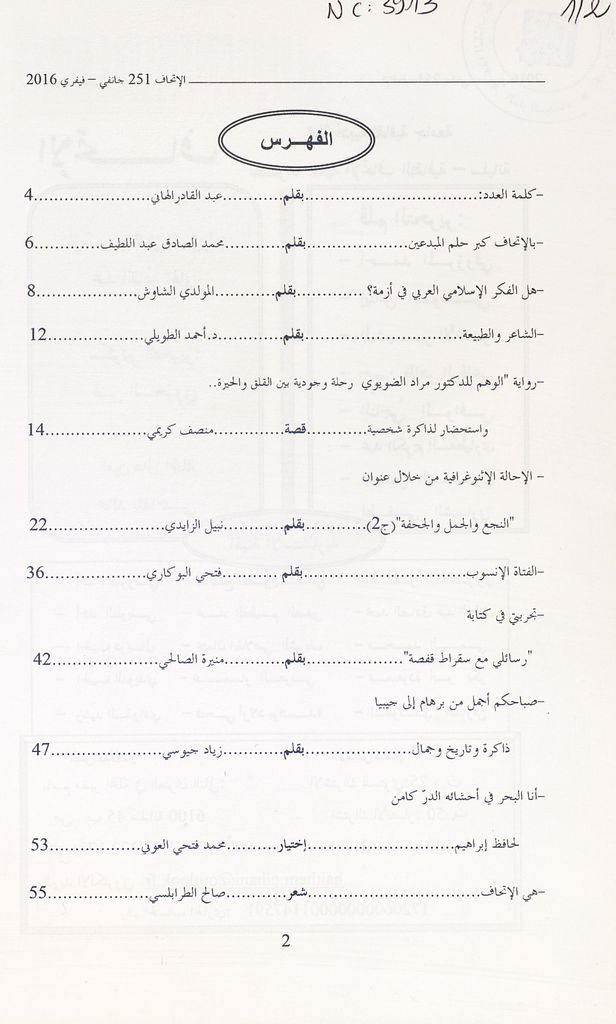 NC: 3913
1/2
الإتحاف 251 جانفي – فيفري 2016
الفهرس
-كلمة العدد:...............................بقلم..........عبد القادر الهاني.....................4
-بالإتحاف كبر حلم المبدعين...............بقلم..........محمد الصادق عبد اللطيف............6
-هل الفكر الإسلامي العربي في أزمة؟ ............بقلم...........المولدي الشاوش.................8
-الشاعر والطبيعة............................بقلم..........د.أحمد الطويلي....................12
-رواية "الوهم للدكتور مراد الضويوي رحلة وجودية بين القلق والحيرة..
واستحضار لذاكرة شخصية...........قصة............منصف كريمي....................14
- الإحالة الإثنوغرافية من خلال عنوان
"النجع والجمل والجحفة"(ج2)..........بقلم..........نبيل الزايدي....................22
-الفتاة الإنسوب............................بقلم ..........فتحي البوكاري....................36
-تجربتي في كتابة
"رسائلي مع سقراط قفصة"..............بقلم............منيرة الصالحي....................42
-صباحكم أجمل من برهام إلى جيبيا
ذاكرة وتاريخ وجمال..................بقلم............زياد جيوسي....................47
-أنا البحر في أحشائه الدرّ كامن
لحافظ إبراهيم......................إختيار..........محمد فتحي العوني................53
-هي الإتحاف............................شعر..........صالح الطرابلسي....................55
2